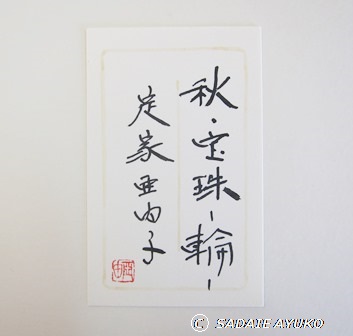 秋・宝珠-輪-
定家亜由子
© SADAIE AYUKO